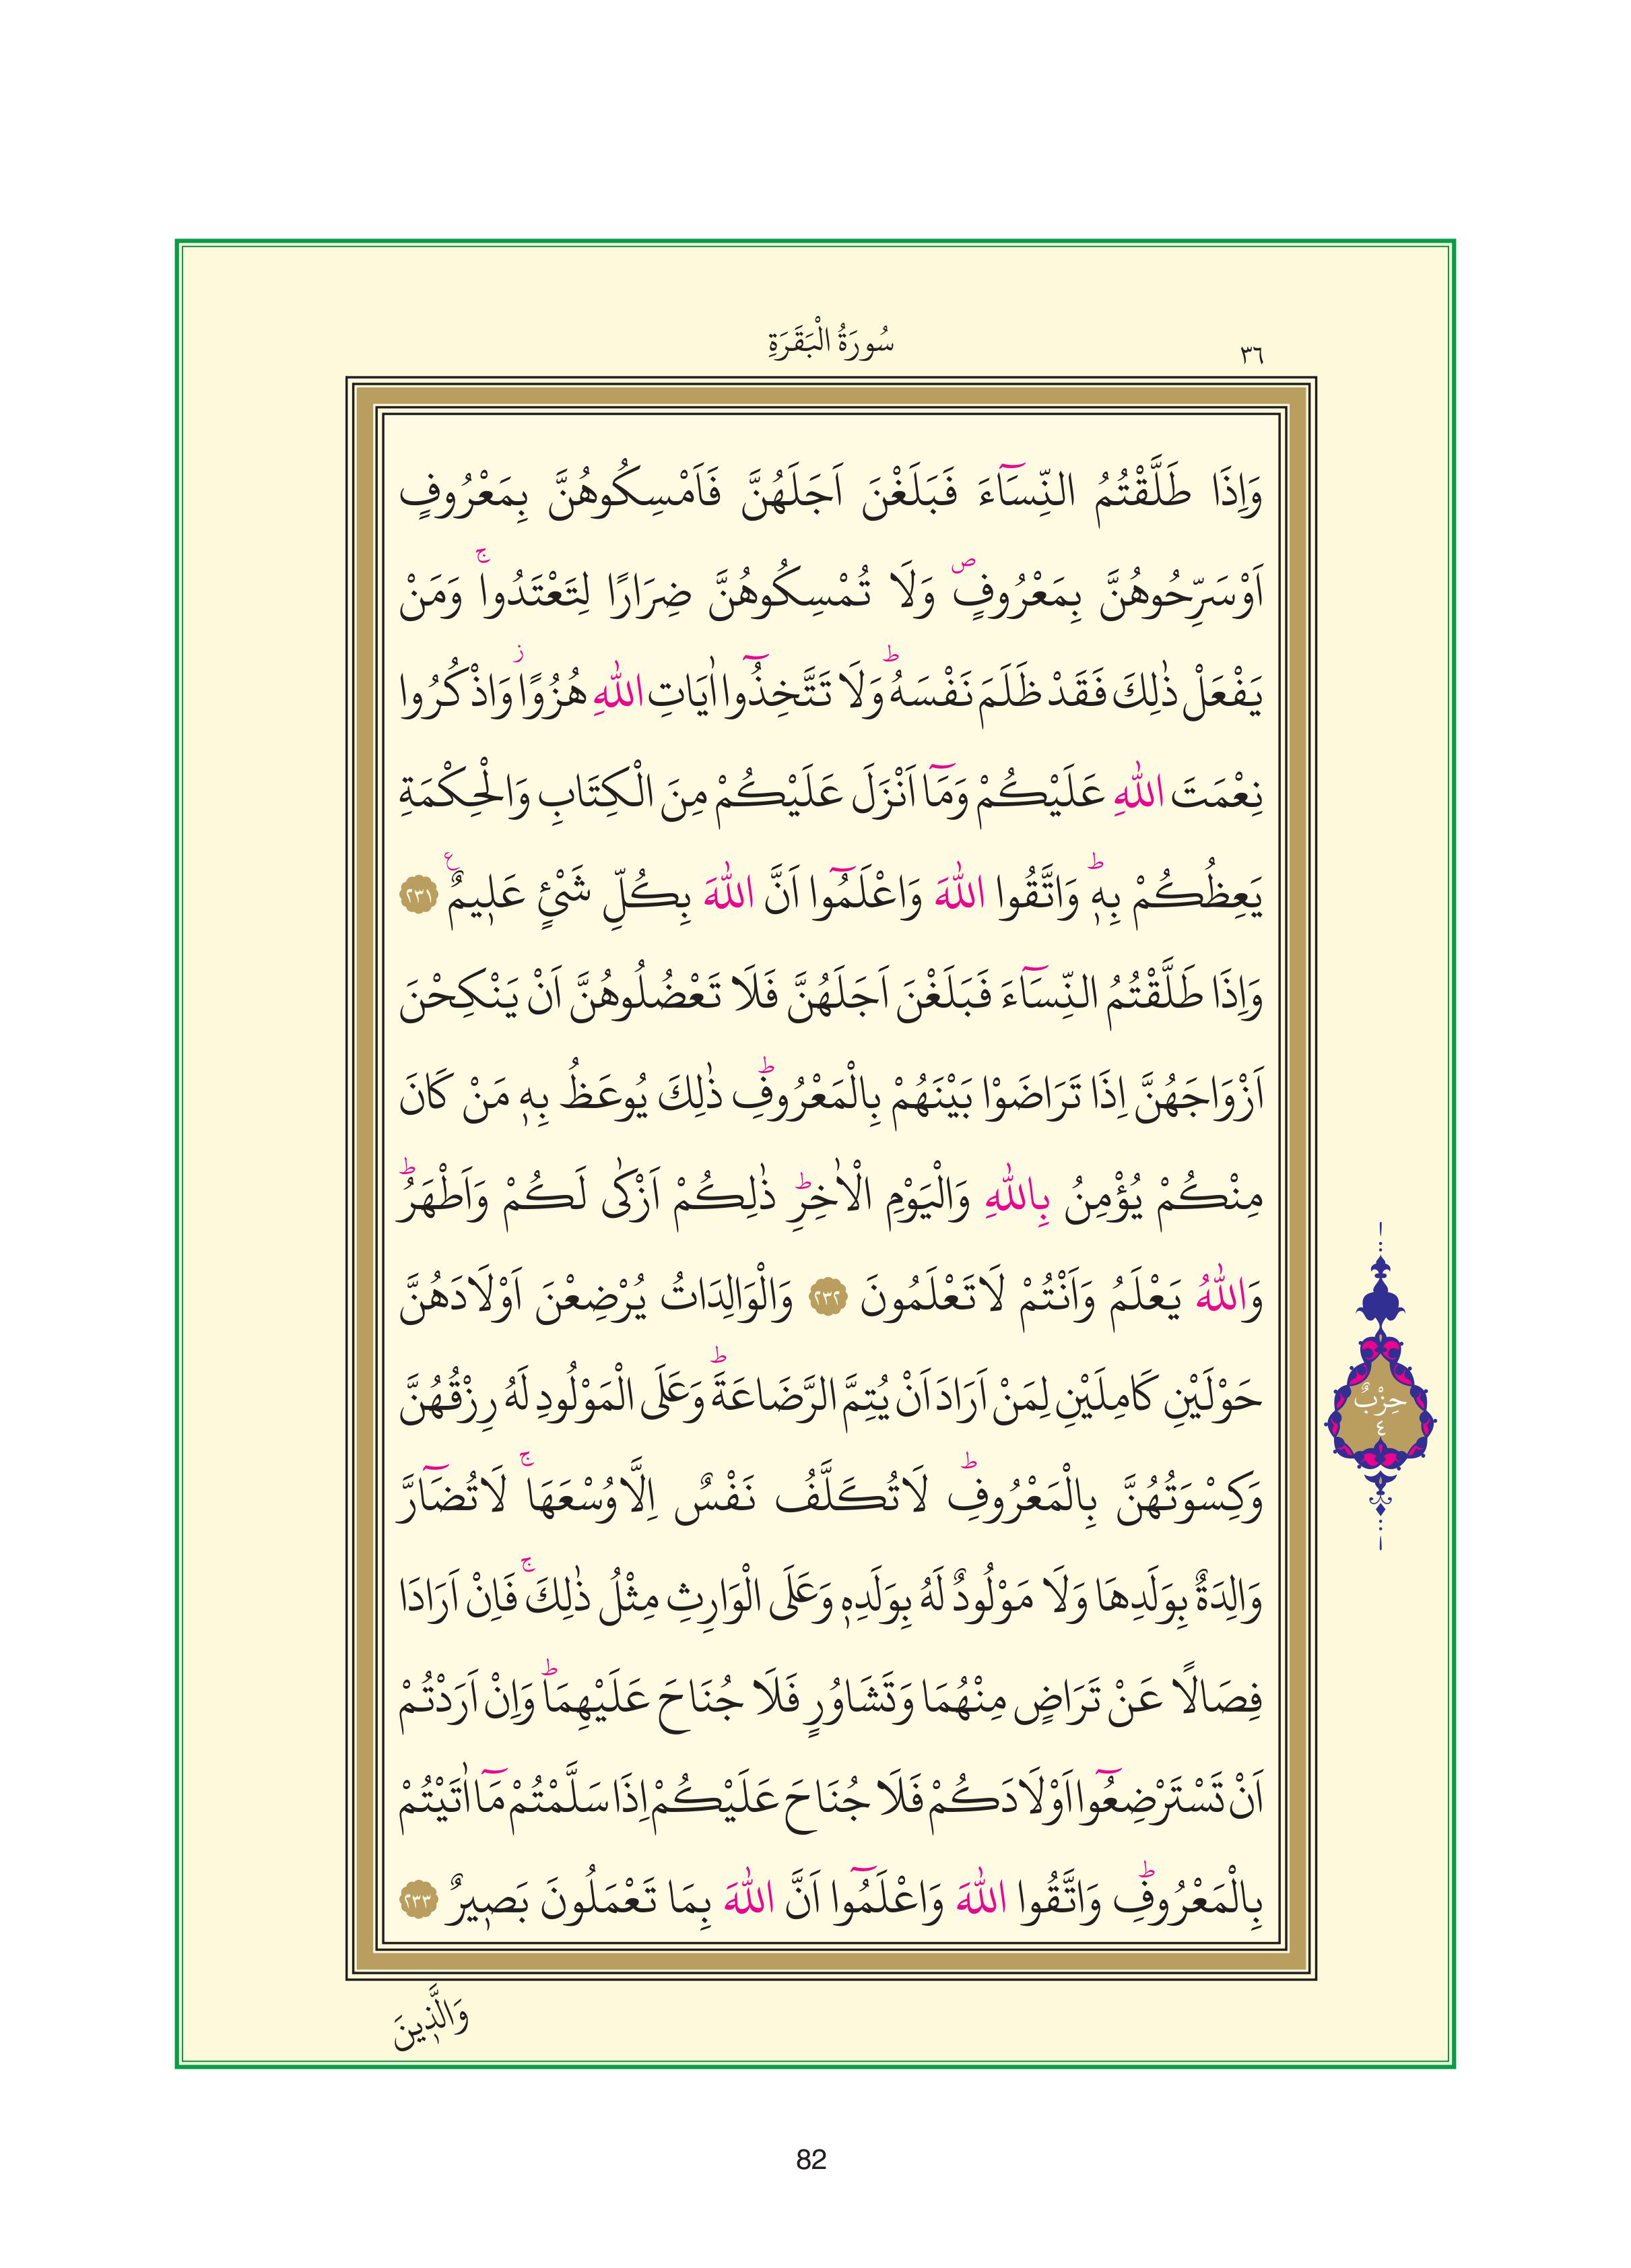 ٣٦
سُورَةُ الْبَقَرَةِ
وَاِذَا طَلَّقْتُمُ النِّسَٓاءَ فَبَلَغْنَ اَجَلَهُنَّ فَاَمْسِكُوهُنَّ بِمَعْرُوفٍ
اَوْسَرِّحُوهُنَّ بِمَعْرُوفٍۖ وَلَا تُمْسِكُوهُنَّ ضِرَارًا لِتَعْتَدُواۚ وَمَنْ
يَفْعَلْ ذٰلِكَ فَقَدْ ظَلَمَ نَفْسَهُۜ وَلَا تَتَّخِذُٓوا اٰيَاتِ اللّٰهِ هُزُوًاۘ وَاذْكُرُوا
نِعْمَتَ اللّٰهِ عَلَيْكُمْ وَمَٓا اَنْزَلَ عَلَيْكُمْ مِنَ الْكِتَابِ وَالْحِكْمَةِ
يَعِظُكُمْ بِهٖؕ وَاتَّقُوا اللّٰهَ وَاعْلَمُٓوا اَنَّ اللّٰهَ بِكُلِّ شَيْئٍ عَلٖيمٌ ﴿٢٣١﴾ ع
وَاِذَا طَلَّقْتُمُ النِّسَٓاءَ فَبَلَغْنَ اَجَلَهُنَّ فَلَا تَعْضُلُوهُنَّ اَنْ يَنْكِحْنَ
اَزْوَاجَهُنَّ اِذَا تَرَاضَوْا بَيْنَهُمْ بِالْمَعْرُوفِؕ ذٰلِكَ يُوعَظُ بِهٖ مَنْ كَانَ
مِنْكُمْ يُؤْمِنُ بِاللّٰهِ وَالْيَوْمِ الْاٰخِرِؕ ذٰلِكُمْ اَزْكٰى لَكُمْ وَاَطْهَرُؕ
وَاللّٰهُ يَعْلَمُ وَاَنْتُمْ لَا تَعْلَمُونَ ﴿٢٣٢﴾ وَالْوَالِدَاتُ يُرْضِعْنَ اَوْلَادَهُنَّ
حَوْلَيْنِ كَامِلَيْنِ لِمَنْ اَرَادَ اَنْ يُتِمَّ الرَّضَاعَةَؕ وَعَلَى الْمَوْلُودِ لَهُ رِزْقُهُنَّ
وَكِسْوَتُهُنَّ بِالْمَعْرُوفِؕ لَا تُكَلَّفُ نَفْسٌ اِلَّا وُسْعَهَاۚ لَا تُضَٓارَّ
وَالِدَةٌ بِوَلَدِهَا وَلَا مَوْلُودٌ لَهُ بِوَلَدِهٖ وَعَلَى الْوَارِثِ مِثْلُ ذٰلِكَۚ فَاِنْ اَرَادَا
فِصَالًا عَنْ تَرَاضٍ مِنْهُمَا وَتَشَاوُرٍ فَلَا جُنَاحَ عَلَيْهِمَاؕ وَاِنْ اَرَدْتُمْ
اَنْ تَسْتَرْضِعُٓوا اَوْلَادَكُمْ فَلَا جُنَاحَ عَلَيْكُمْ اِذَا سَلَّمْتُمْ مَٓا اٰتَيْتُمْ
بِالْمَعْرُوفِؕ وَاتَّقُوا اللّٰهَ وَاعْلَمُٓوا اَنَّ اللّٰهَ بِمَا تَعْمَلُونَ بَصٖيرٌ ﴿٢٣٣﴾
حِزْبٌ
٤
وَالَّذٖينَ
82